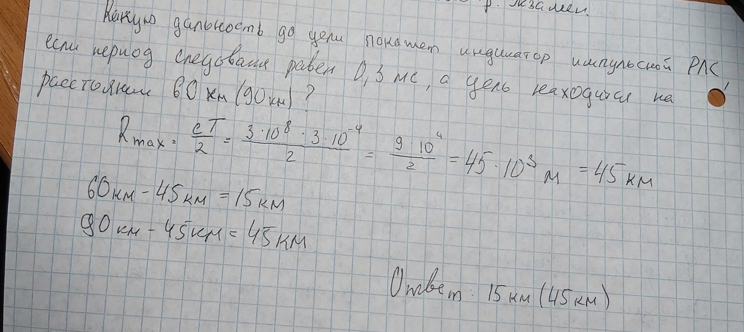 р. экзамен.
Какую дальность до цели покажет индикатор импульсной РЛС,
если период следования равен 0,3 мс, а цель находится на
расстоянии 60 км (90 км)?
Rmax = cT/2 = 3·10⁸·3·10⁻⁴/2 = 9·10⁴/2 = 45·10³ м = 45 км
60 км - 45 км = 15 км
90 км - 45 км = 45 км
Ответ: 15 км (45 км)